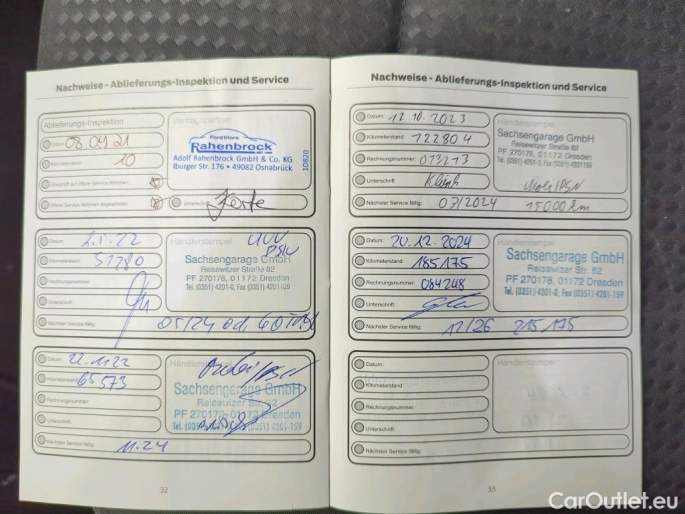 Nachweise - Ablieferungs-Inspektion und Service
Ablieferungs-Inspektion
Datum 08.04.21
10
Ford Store
Rahenbrock
Adolf Rahenbrock GmbH & Co. KG
Iburger Str. 176 • 49082 Osnabrück
Unterschrift
Datum
Händlerstempel
Kilometerstand 51280
Rechnungsnummer
Unterschrift
Sachsengarage GmbH
Reisewitzer Straße 82
PF 270176, 01172 Dresden
Tel. (0351) 4201-0, Fax (0351) 4201-159
Nächster Service fällig: 05/24
Datum 22.11.22
Kilometerstand 65573
Rechnungsnummer
Unterschrift
Sachsengarage GmbH
Reisewitzer Str. 82
PF 270176, 01172 Dresden
Tel. (0351) 4201-0, Fax (0351) 4201-159
Nächster Service fällig: 11.24
32
Nachweise - Ablieferungs-Inspektion und Service
Datum: 12.10.2023
Kilometerstand: 122804
Rechnungsnummer: 013213
Unterschrift
Sachsengarage GmbH
Reisewitzer Straße 82
PF 270176, 01172 Dresden
Tel. (0351) 4201-0, Fax (0351) 4201159
Nächster Service fällig: 07/2024 15000 km
Datum: 20.12.2024
Kilometerstand: 185175
Rechnungsnummer: 084248
Unterschrift:
Sachsengarage GmbH
Reisewitzer Str. 82
PF 270176, 01172 Dresden
Tel. (0351) 4201-0, Fax (0351) 4201-159
Nächster Service fällig: 12/26 215175
Datum:
Kilometerstand
Rechnungsnummer:
Unterschrift
Nächster Service fällig:
33
CarOutlet.eu